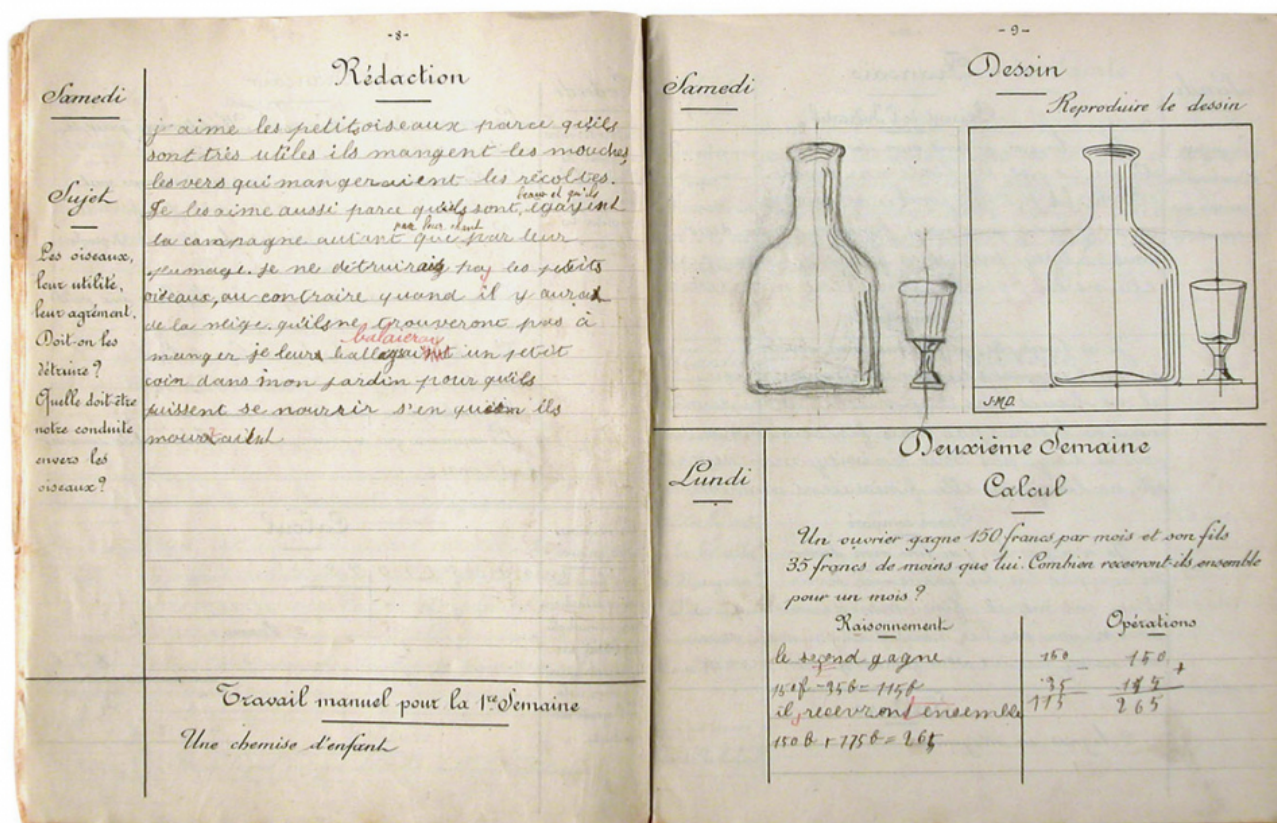 -8-
Rédaction
Samedi
Sujet
Les oiseaux,
leur utilité,
leur agrément.
Doit-on les
détruire ?
Quelle doit être
notre conduite
envers les
oiseaux ?
j'aime les petits oiseaux parce qu'ils
sont très utiles ils mangent les mouches,
les vers qui mangeraient les récoltes.
beaux et qu'ils
Je les aime aussi parce qu'ils sont, égayent
par leur chant
la campagne autant que par leur
plumage. Je ne détruirais pas les petits
oiseaux, au contraire quand il y aura
de la neige qu'ils ne trouveront pas à
balaierai
manger je leurs un petit
coin dans mon jardin pour qu'ils
puissent se nourrir s'en ils
Travail manuel pour la 1re Semaine
Une chemise d'enfant
-9-
Dessin
Samedi
Reproduire le dessin
J.M.D.
Deuxième Semaine
Lundi
Calcul
Un ouvrier gagne 150 francs par mois et son fils
35 francs de moins que lui. Combien recevront-ils ensemble
pour un mois ?
Raisonnement
le second gagne
150f - 35f = 115f
il recevront ensemble
150f + 115f = 265
Opérations
150 -
35
115
150 +
115
265